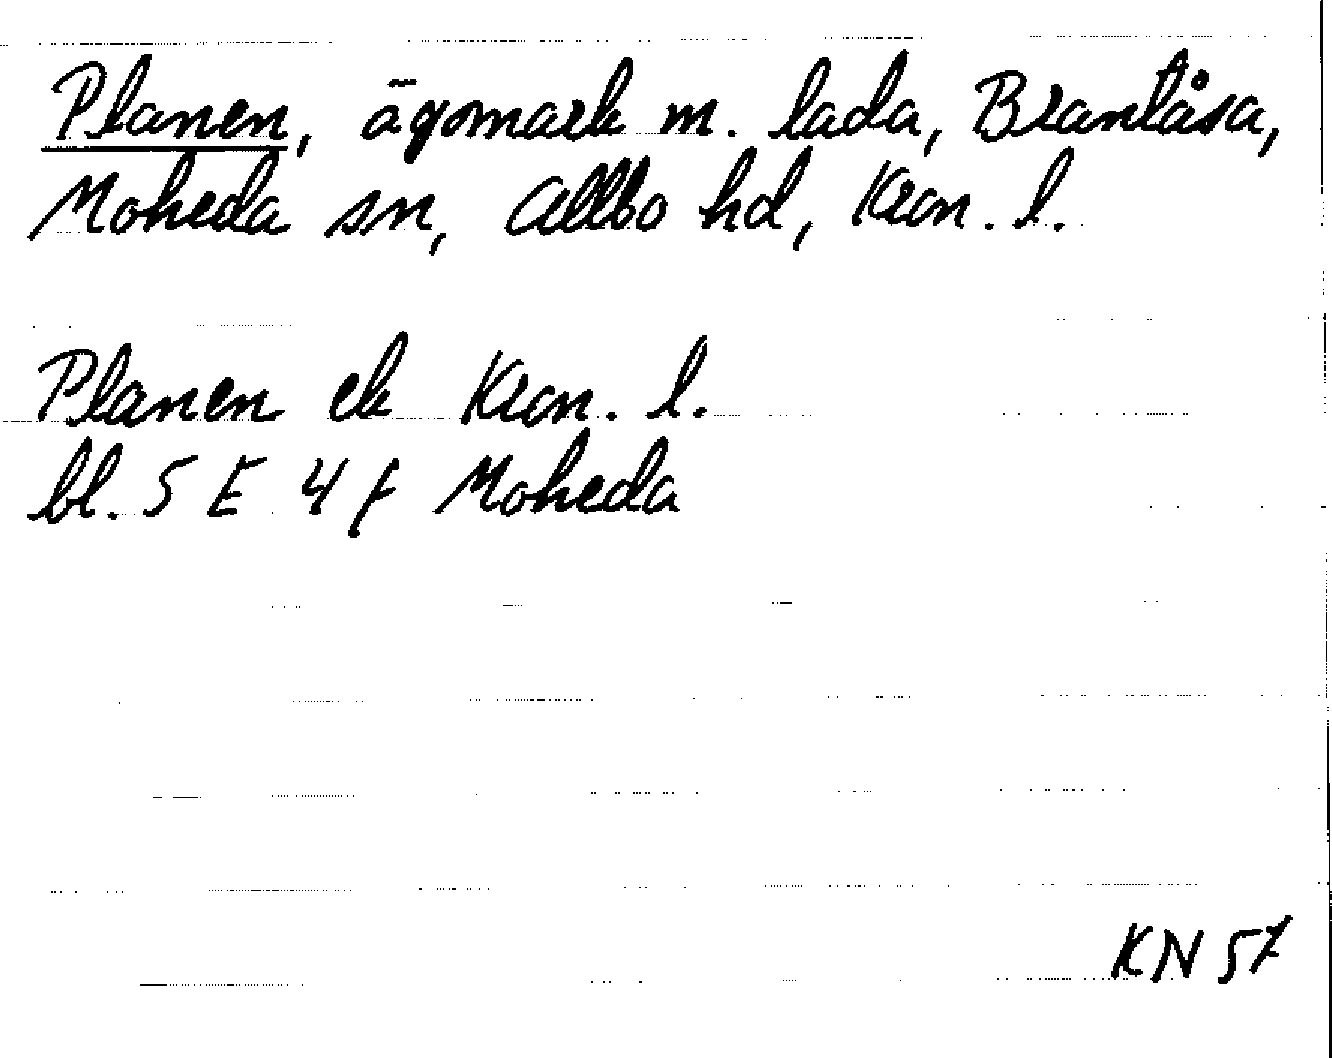 Planen, ägomark m. lada, Brantåsa,
Moheda sn, Allbo hd, Kron. l.
Planen ek Kron. l.
bl. 5 E 4 f Moheda
KN 57